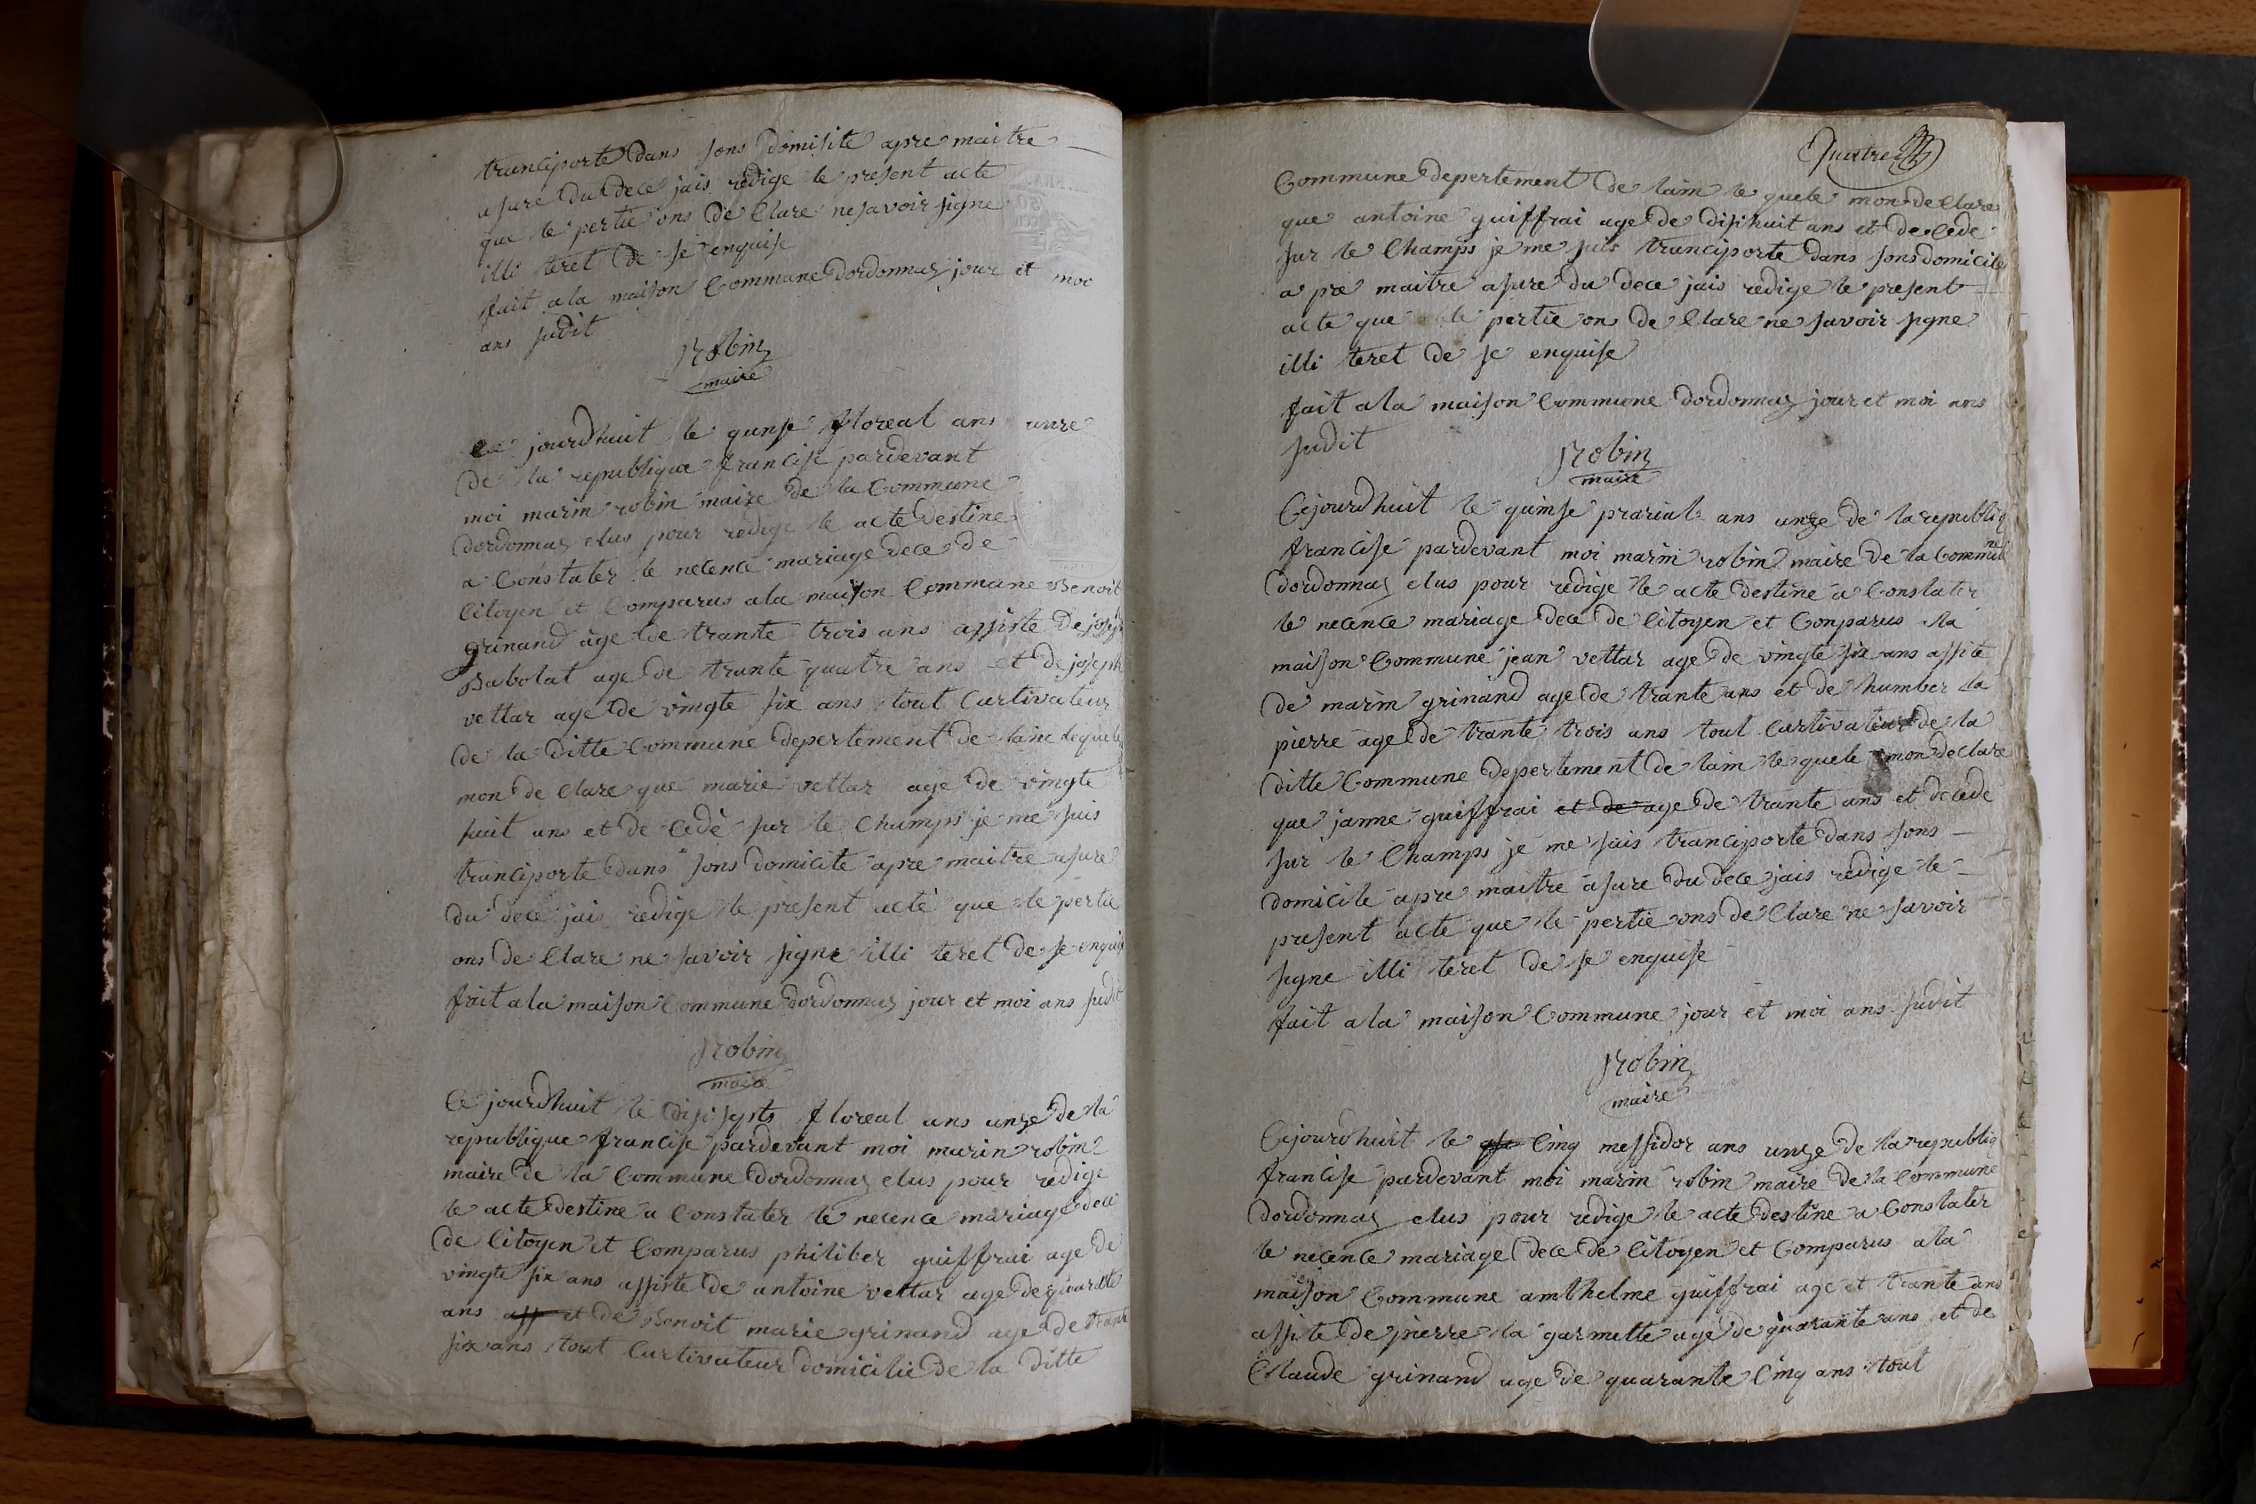 tranciporte dans sons domisile apre maitre
asure du dece jais redige le present acte
que le pertie ons de Clare ne savoir signe
illi teret de se enquise
fait a la maison Commune dordonnaz jour et moi
ans sudit
Robin
maire
Ce jourdhuit le quinse floreal ans unze
de la republique francise pardevant
moi marin robin maire de la Commune
dordonnaz elus pour redige le acte destine
a Constater le necence mariage dece de
Citoyen et Comparus a la maison Commune Benoit
grinand age de trante trois ans assiste de joseph
Babolat age de trante quatre ans et de joseph
vettar age de vingte six ans tout Curtivateur
de la ditte Commune depertement de lain le quele
mon de Clare que marie vettar age de vingte
huit ans et de Cede sur le Champs je me suis
tranciporte dans sons domicile apre maitre asure
du dece jais redige le present acte que le pertie
ons de Clare ne savoir signe illi teret de se enquise
fait a la maison Commune dordonnaz jour et moi ans sudit
Robin
maire
Ce jourdhuit le disisepts floreal ans unze de la
republique francise pardevant moi marin robin
maire de la Commune dordonnaz elus pour redige
le acte destine a Constater le necence mariage dece
de Citoyen et Comparus philiber guiffrai age de
vingte six ans assiste de antoine vettar age de quarante
ans ass et de Benoit marie grinand age de trante
six ans tout Curtivateur domicilie de la ditte
quatre
Commune depertement de lain le quele mon de Clare
que antoine guiffrai age de disihuit ans et de Cede
sur le Champs je me suis tranciporte dans sons domicile
a pre maitre asure du dece jais redige le present
acte que le pertie ons de Clare ne savoir signe
illi teret de se enquise
fait a la maison Commune dordonnaz jour et moi ans
sudit
Robin
maire
Cejourdhuit le quinse prarial ans unze de la republiq
francise pardevant moi marin robin maire de la Commune
dordonnaz elus pour redige le acte destine a Constater
le necence mariage dece de Citoyen et Conparus la
maison Commune jean vettar age de vingte six ans assite
de marin grinand age de trante ans et de humber la
pierre age de trante trois ans tout Curtivateur de la
ditte Commune depertement de lain le quele mon de Clare
que janne guiffrai et de age de trante ans et decede
sur le Champs je me suis tranciporte dans sons
domicile apre maitre asure du dece jais redige le
present acte que le pertie ons de Clare ne savoir
signe illi teret de se enquise
fait a la maison Commune jour et moi ans sudit
Robin
maire
Cejourdhuit le Cinq messidor ans unze de la republiq
francise pardevant moi marin robin maire de la Commune
dordonnaz elus pour redige le acte destine a Constater
le necence mariage dece de Citoyen et Comparus a la
maison Commune amthelme guiffrai age et trante ans
assite de pierre la garmette age de quarante ans et de
Claude grinand age de quarante Cinq ans tout